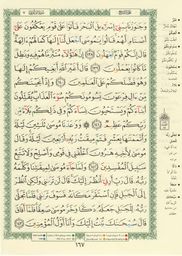 وَجَٰوَزْنَا بِبَنِىٓ إِسْرَٰٓءِيلَ ٱلْبَحْرَ فَأَتَوْا۟ عَلَىٰ قَوْمٍ يَعْكُفُونَ عَلَىٰٓ
أَصْنَامٍ لَّهُمْ قَالُوا۟ يَٰمُوسَى ٱجْعَل لَّنَآ إِلَٰهًا كَمَا لَهُمْ ءَالِهَةٌ
قَالَ إِنَّكُمْ قَوْمٌ تَجْهَلُونَ ١٣٨ إِنَّ هَٰٓؤُلَآءِ مُتَبَّرٌ مَّا هُمْ فِيهِ وَبَٰطِلٌ
مَّا كَانُوا۟ يَعْمَلُونَ ١٣٩ قَالَ أَغَيْرَ ٱللَّهِ أَبْغِيكُمْ إِلَٰهًا
وَهُوَ فَضَّلَكُمْ عَلَى ٱلْعَٰلَمِينَ ١٤٠ وَإِذْ أَنجَيْنَٰكُم
مِّنْ ءَالِ فِرْعَوْنَ يَسُومُونَكُمْ سُوٓءَ ٱلْعَذَابِ يُقَتِّلُونَ
أَبْنَآءَكُمْ وَيَسْتَحْيُونَ نِسَآءَكُمْ وَفِى ذَٰلِكُم بَلَآءٌ مِّن
رَّبِّكُمْ عَظِيمٌ ١٤١ وَوَٰعَدْنَا مُوسَىٰ ثَلَٰثِينَ لَيْلَةً وَأَتْمَمْنَٰهَا
بِعَشْرٍ فَتَمَّ مِيقَٰتُ رَبِّهِۦٓ أَرْبَعِينَ لَيْلَةً وَقَالَ مُوسَىٰ
لِأَخِيهِ هَٰرُونَ ٱخْلُفْنِى فِى قَوْمِى وَأَصْلِحْ وَلَا تَتَّبِعْ
سَبِيلَ ٱلْمُفْسِدِينَ ١٤٢ وَلَمَّا جَآءَ مُوسَىٰ لِمِيقَٰتِنَا وَكَلَّمَهُۥ
رَبُّهُۥ قَالَ رَبِّ أَرِنِىٓ أَنظُرْ إِلَيْكَ قَالَ لَن تَرَىٰنِى وَلَٰكِنِ ٱنظُرْ
إِلَى ٱلْجَبَلِ فَإِنِ ٱسْتَقَرَّ مَكَانَهُۥ فَسَوْفَ تَرَىٰنِى فَلَمَّا تَجَلَّىٰ
رَبُّهُۥ لِلْجَبَلِ جَعَلَهُۥ دَكًّا وَخَرَّ مُوسَىٰ صَعِقًا فَلَمَّآ أَفَاقَ
قَالَ سُبْحَٰنَكَ تُبْتُ إِلَيْكَ وَأَنَا۠ أَوَّلُ ٱلْمُؤْمِنِينَ ١٤٣
١٦٧